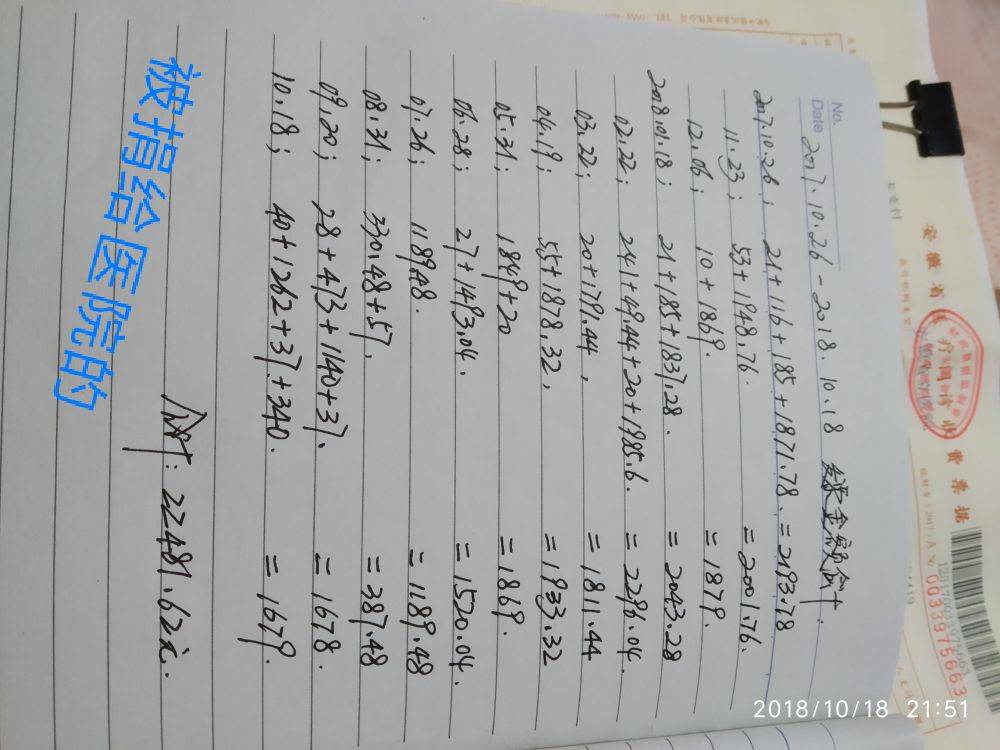 No.
Date 2017.10.26-2018.10.18 总金额合计.
2017.10.26; 21+116+185+1871.78. =2193.78
11.23; 53+1948.76. =2001.76.
12.06; 10+1869. =1879.
2018.01.18; 21+185+1837.28. =2043.28
02.22; 241+49.44+20+1985.6. =2296.04.
03.22; 20+1791.44, =1811.44
04.19; 55+1878.32, =1933.32
05.31; 1849+20 =1869.
06.28; 27+1493.04. =1520.04.
07.26; 1189.48. =1189.48
08.31; 330.48+57. =387.48
09.20; 28+473+1140+37. =1678.
10.18; 40+1262+37+340. =1679.
合计: 22481.62元.
被捐给医院的
安徽省 门诊收费票据
120170033975663
0033975663
2018/10/18 21:51